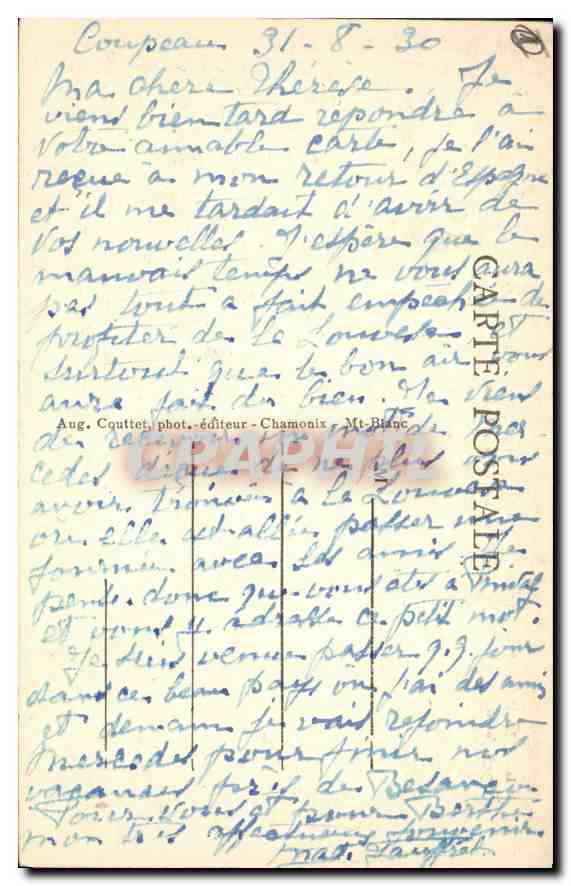 Coupeau 31-8-30
Ma chère Thérèse. Je
viens bien tard répondre à
votre aimable carte, je l'ai
reçue à mon retour d'Espagne
et il me tardait d'avoir de
vos nouvelles. J'espère que le
mauvais temps ne vous aura
pas tout à fait empêché de
profiter de la Louvesc et
surtout que le bon air vous
aura fait du bien. Je viens
Aug. Couttet, phot.-éditeur - Chamonix - Mt-Blanc
de recevoir un mot de Mer
cedes déçue de ne plus vous
avoir trouvées à la Louvesc
où elle est allée passer une
journée avec des amis. Je
pense donc que vous êtes à
et vous y adresse ce petit mot.
Je suis venue passer q.q. jours
dans ce beau pays où j'ai des amis
et demain je vais rejoindre
Mercedes pour finir nos
vacances près de Besançon.
Pour vous et pour Berthe
mon très affectueux souvenir.
CARTE POSTALE
CPAPHIL